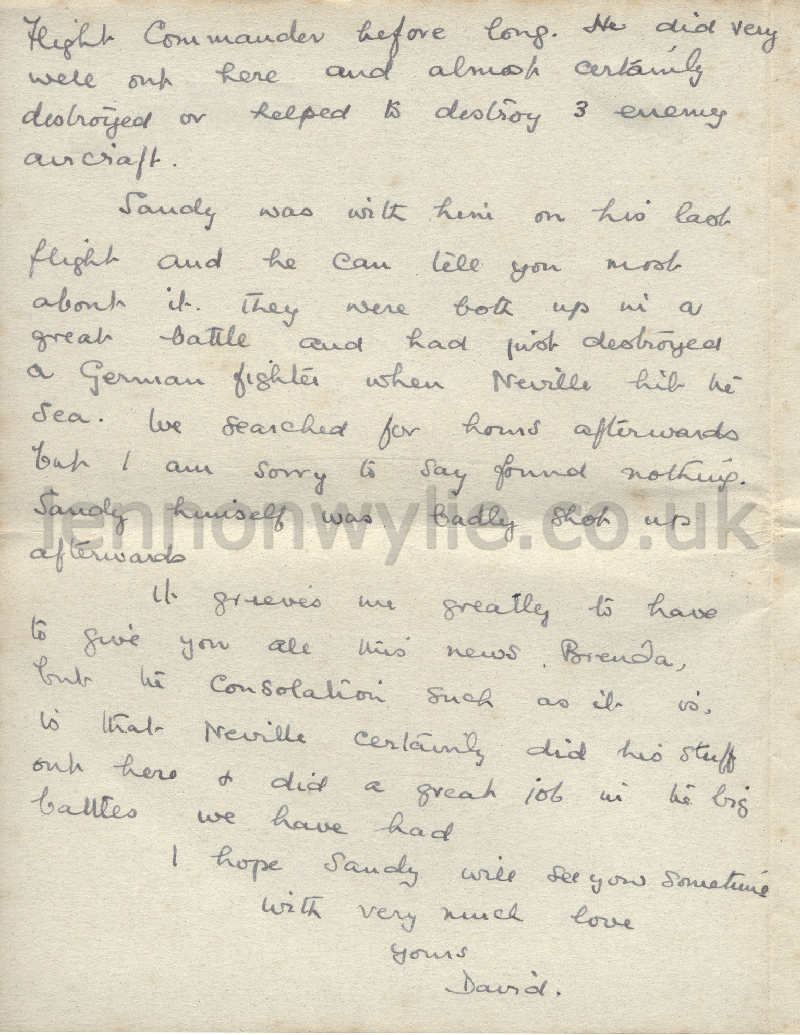 Flight Commander before long. He did very
well out here and almost certainly
destroyed or helped to destroy 3 enemy
aircraft.
Sandy was with him on his last
flight and he can tell you most
about it. They were both up in a
great battle and had just destroyed
a German fighter when Neville hit the
sea. We searched for hours afterwards
but I am sorry to say found nothing.
Sandy himself was badly shot up
afterwards
lennonwylie.co.uk
It grieves me greatly to have
to give you all this news, Brenda,
but the consolation such as it is,
is that Neville certainly did his stuff
out here & did a great job in the big
battles we have had
I hope Sandy will see you sometime
with very much love
yours
David.